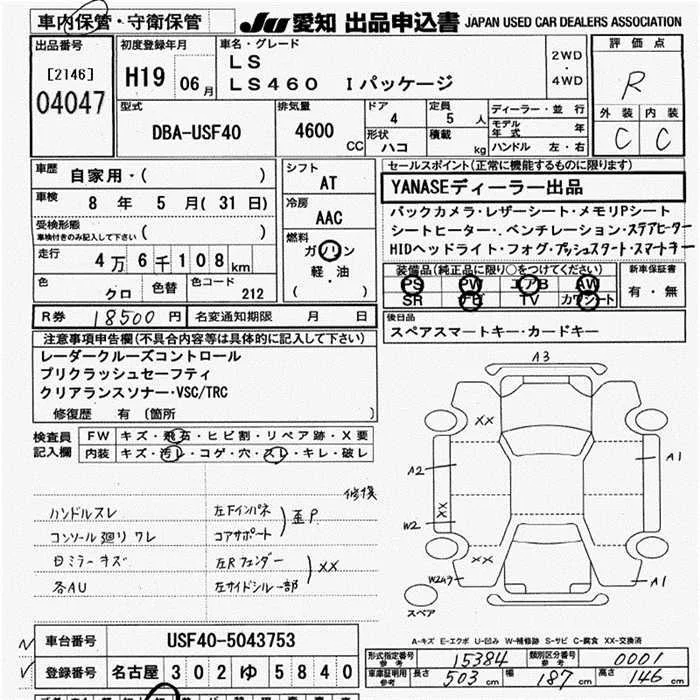 車内保管・守衛保管
JU 愛知 出品申込書 JAPAN USED CAR DEALERS ASSOCIATION
出品番号
[2146]
04047
初度登録年月
H19 06月
車名・グレード
LS
LS460 Iパッケージ
2WD
・
4WD
評価点
R
外装 内装
C C
型式
DBA-USF40
排気量
4600 CC
ドア
4
定員
5 人
形状
ハコ
積載
kg
ディーラー・並行
モデル年式 年
ハンドル 左・右
車歴
自家用・( )
車検
8 年 5 月( 31 日)
受検形態
車検付きのみ記入して下さい ( )
走行
4万6千108km
色
クロ
色替
色コード
212
シフト
AT
冷房
AAC
燃料
ガソリン
軽・油
( )
セールスポイント(正常に機能するものに限ります)
YANASEディーラー出品
バックカメラ・レザーシート・メモリPシート
シートヒーター・.ベンチレーション・ステアヒーター
HIDヘッドライト・フォグ・プッシュスタート・スマートキー
装備品(純正品に限り○をつけてください)
PS PW エアB AW
SR ナビ TV カワシート
新車保証書
有・無
後日品
スペアスマートキー・カードキー
R券 18500 円
名変通知期限 月 日
注意事項申告欄(不具合内容等は具体的に記入して下さい)
レーダークルーズコントロール
プリクラッシュセーフティ
クリアランスソナー・VSC/TRC
修復歴 有 〔箇所 〕
検査員
記入欄
FW キズ・飛石・ヒビ割・リペア跡・X要
内装 キズ・汚レ・コゲ・穴・スレ・キレ・破レ
修復
ハンドルスレ
コンソール廻り ワレ
日ミラーキズ
各AU
左Fインパネ
コアサポート
歪P
左Rフェンダー
左サイドシル一部
XX
A3
XX
A2
A1
XX
W2
XX
W2
A1
スペア
A-キズ E-エクボ U-凹み W-補修跡 S-サビ C-腐食 XX-交換済
車台番号 USF40-5043753
登録番号 名古屋 302 ゆ 5840
形式指定番号
参考
15384
類別区分番号
参考
0001
車庫証明用
参考
長さ 503 cm
幅 187 cm
高さ 146 cm